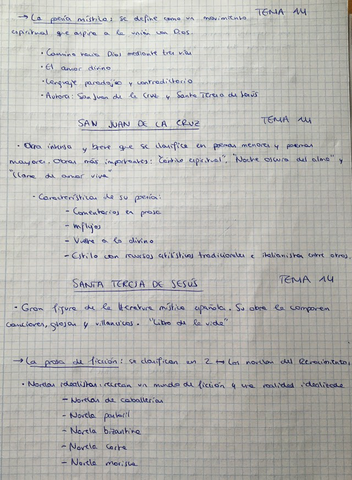 TEMA 14
→ La poesía mística: se define como un movimiento
espiritual que aspira a la unión con Dios.
· Camino hacia Dios mediante tres vías
· El amor divino
· Lenguaje paradójico y contradictorio
· Autores: San Juan de la Cruz y Santa Teresa de Jesús
SAN JUAN DE LA CRUZ TEMA 14
· Obra intensa y breve que se clasifica en poemas menores y poemas
mayores. Obras más importantes: "Cántico espiritual", "Noche oscura del alma" y
"Llama de amor viva"
· Características de su poesía:
- Comentarios en prosa
- Influjos
- Vuelve a lo divino
- Estilo con recursos estilísticos tradicionales e italianistas entre otros.
SANTA TERESA DE JESÚS TEMA 14
· Gran figura de la literatura mística española. Su obra la componen
canciones, glosas y villancicos. "Libro de la vida"
→ La prosa de ficción: se clasifican en 2 → Las novelas del Renacimiento
· Novelas idealistas: recrean un mundo de ficción y una realidad idealizada
- Novelas de caballerías
- Novela pastoril
- Novela bizantina
- Novela corta
- Novela morisca